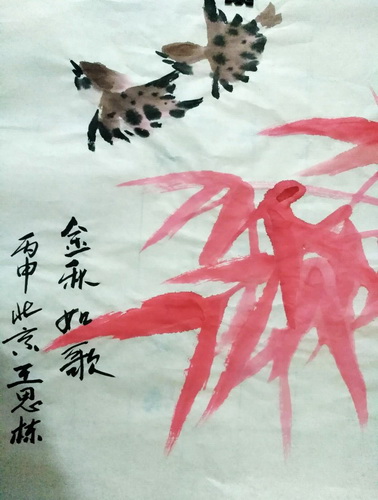 金秋如歌
丙申北京王思栋